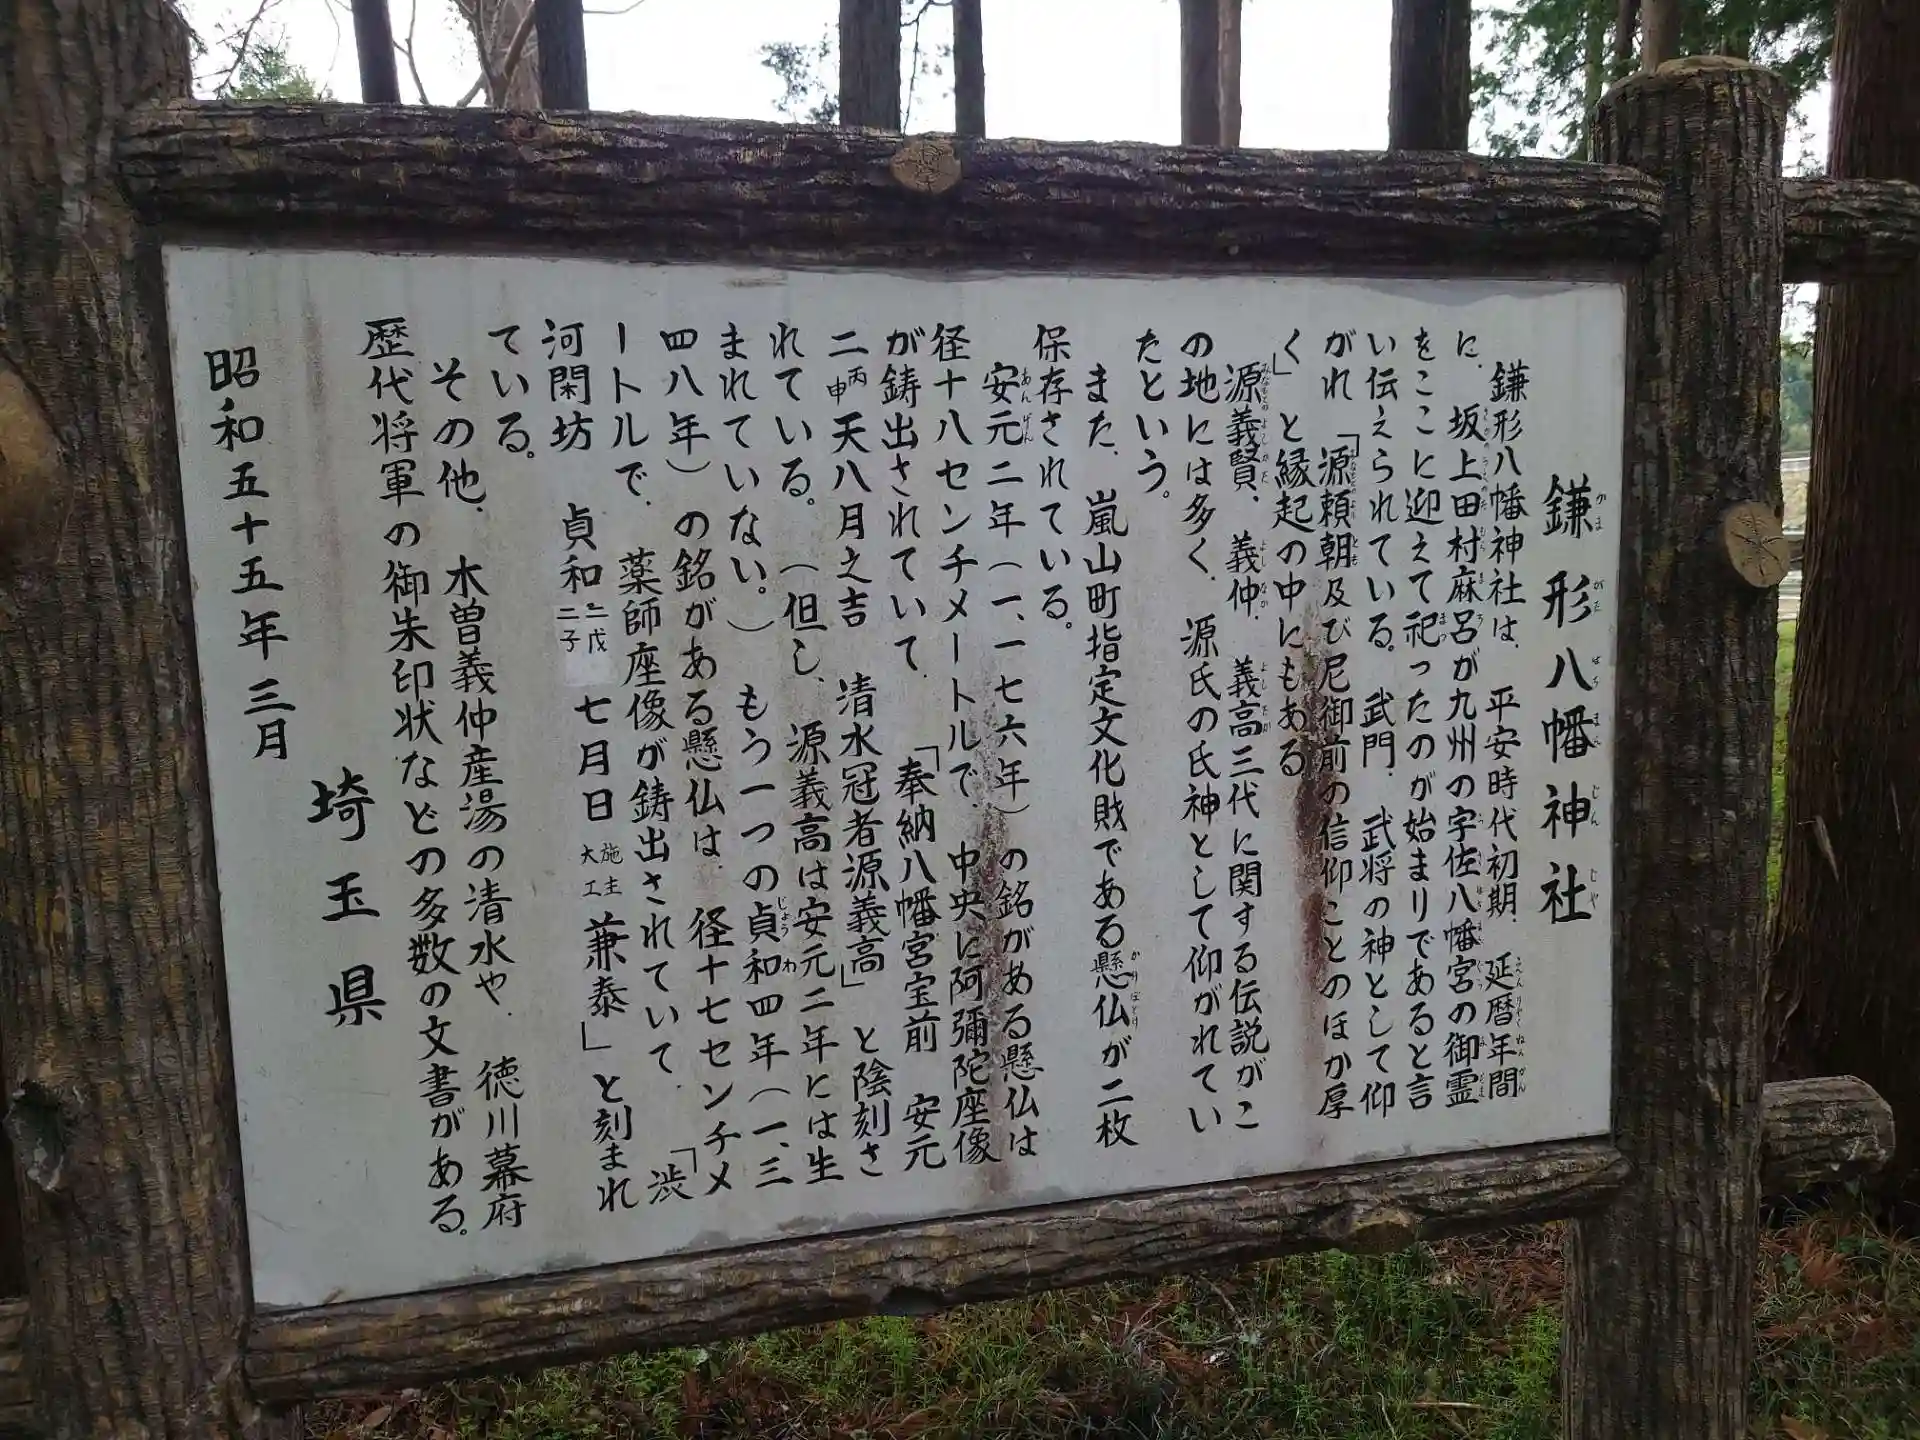 鎌形八幡神社
鎌形八幡神社は、平安時代初期、延暦年間
に、坂上田村麻呂が九州の宇佐八幡宮の御霊
をここに迎えて祀ったのが始まりであると言
い伝えられている。武門、武将の神として仰
がれ「源頼朝及び尼御前の信仰ことのほか厚
く」と縁起の中にもある
源義賢、義仲、義高三代に関する伝説がこ
の地には多く、源氏の氏神として仰がれてい
たという。
また、嵐山町指定文化財である懸仏が二枚
保存されている。
安元二年(一、一七六年)の銘がある懸仏は
径十八センチメートルで、中央に阿彌陀座像
が鋳出されていて、「奉納八幡宮宝前 安元
二丙申天八月之吉 清水冠者源義高」と陰刻さ
れている。(但し、源義高は安元二年には生
まれていない。)もう一つの貞和四年(一、三
四八年)の銘がある懸仏は、径十七センチメ
ートルで、薬師座像が鋳出されていて、「渋
河閑坊 貞和 二子 戊 七月日 大工 施主 兼泰」と刻まれ
ている。
その他、木曽義仲産湯の清水や、徳川幕府
歴代将軍の御朱印状などの多数の文書がある。
埼玉県
昭和五十五年三月